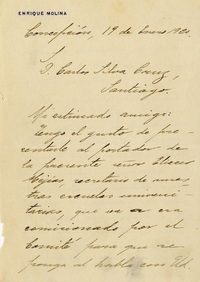 ENRIQUE MOLINA
Concepción, 19 de Enero 1920.
S.
D. Carlos Silva Cruz,
Santiago.
Mi estimado amigo:
Tengo el gusto de pre-
sentarle al portador de
la presente señor Eliecer
Mejías, secretario de nues-
tras escuelas universi-
tarias, que va a esa
comisionado por el
Comité para que se
ponga al habla con Ud.